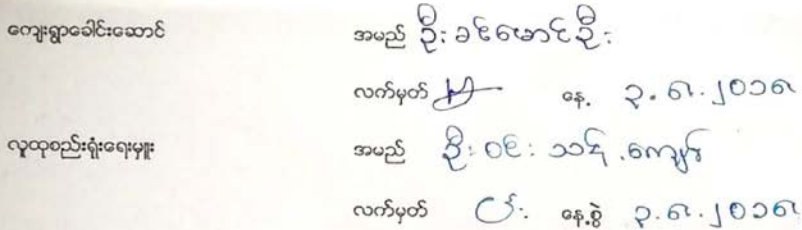 ကျေးရွာခေါင်းဆောင် အမည် ဦးခင်မောင်ဦး
လက်မှတ် နေ့ ၃.၆.၂၀၁၆
လူထုစည်းရုံးရေးမှူး အမည် ဦးဝင်း သန်း ကျော်
လက်မှတ် နေ့စွဲ ၃.၆.၂၀၁၆